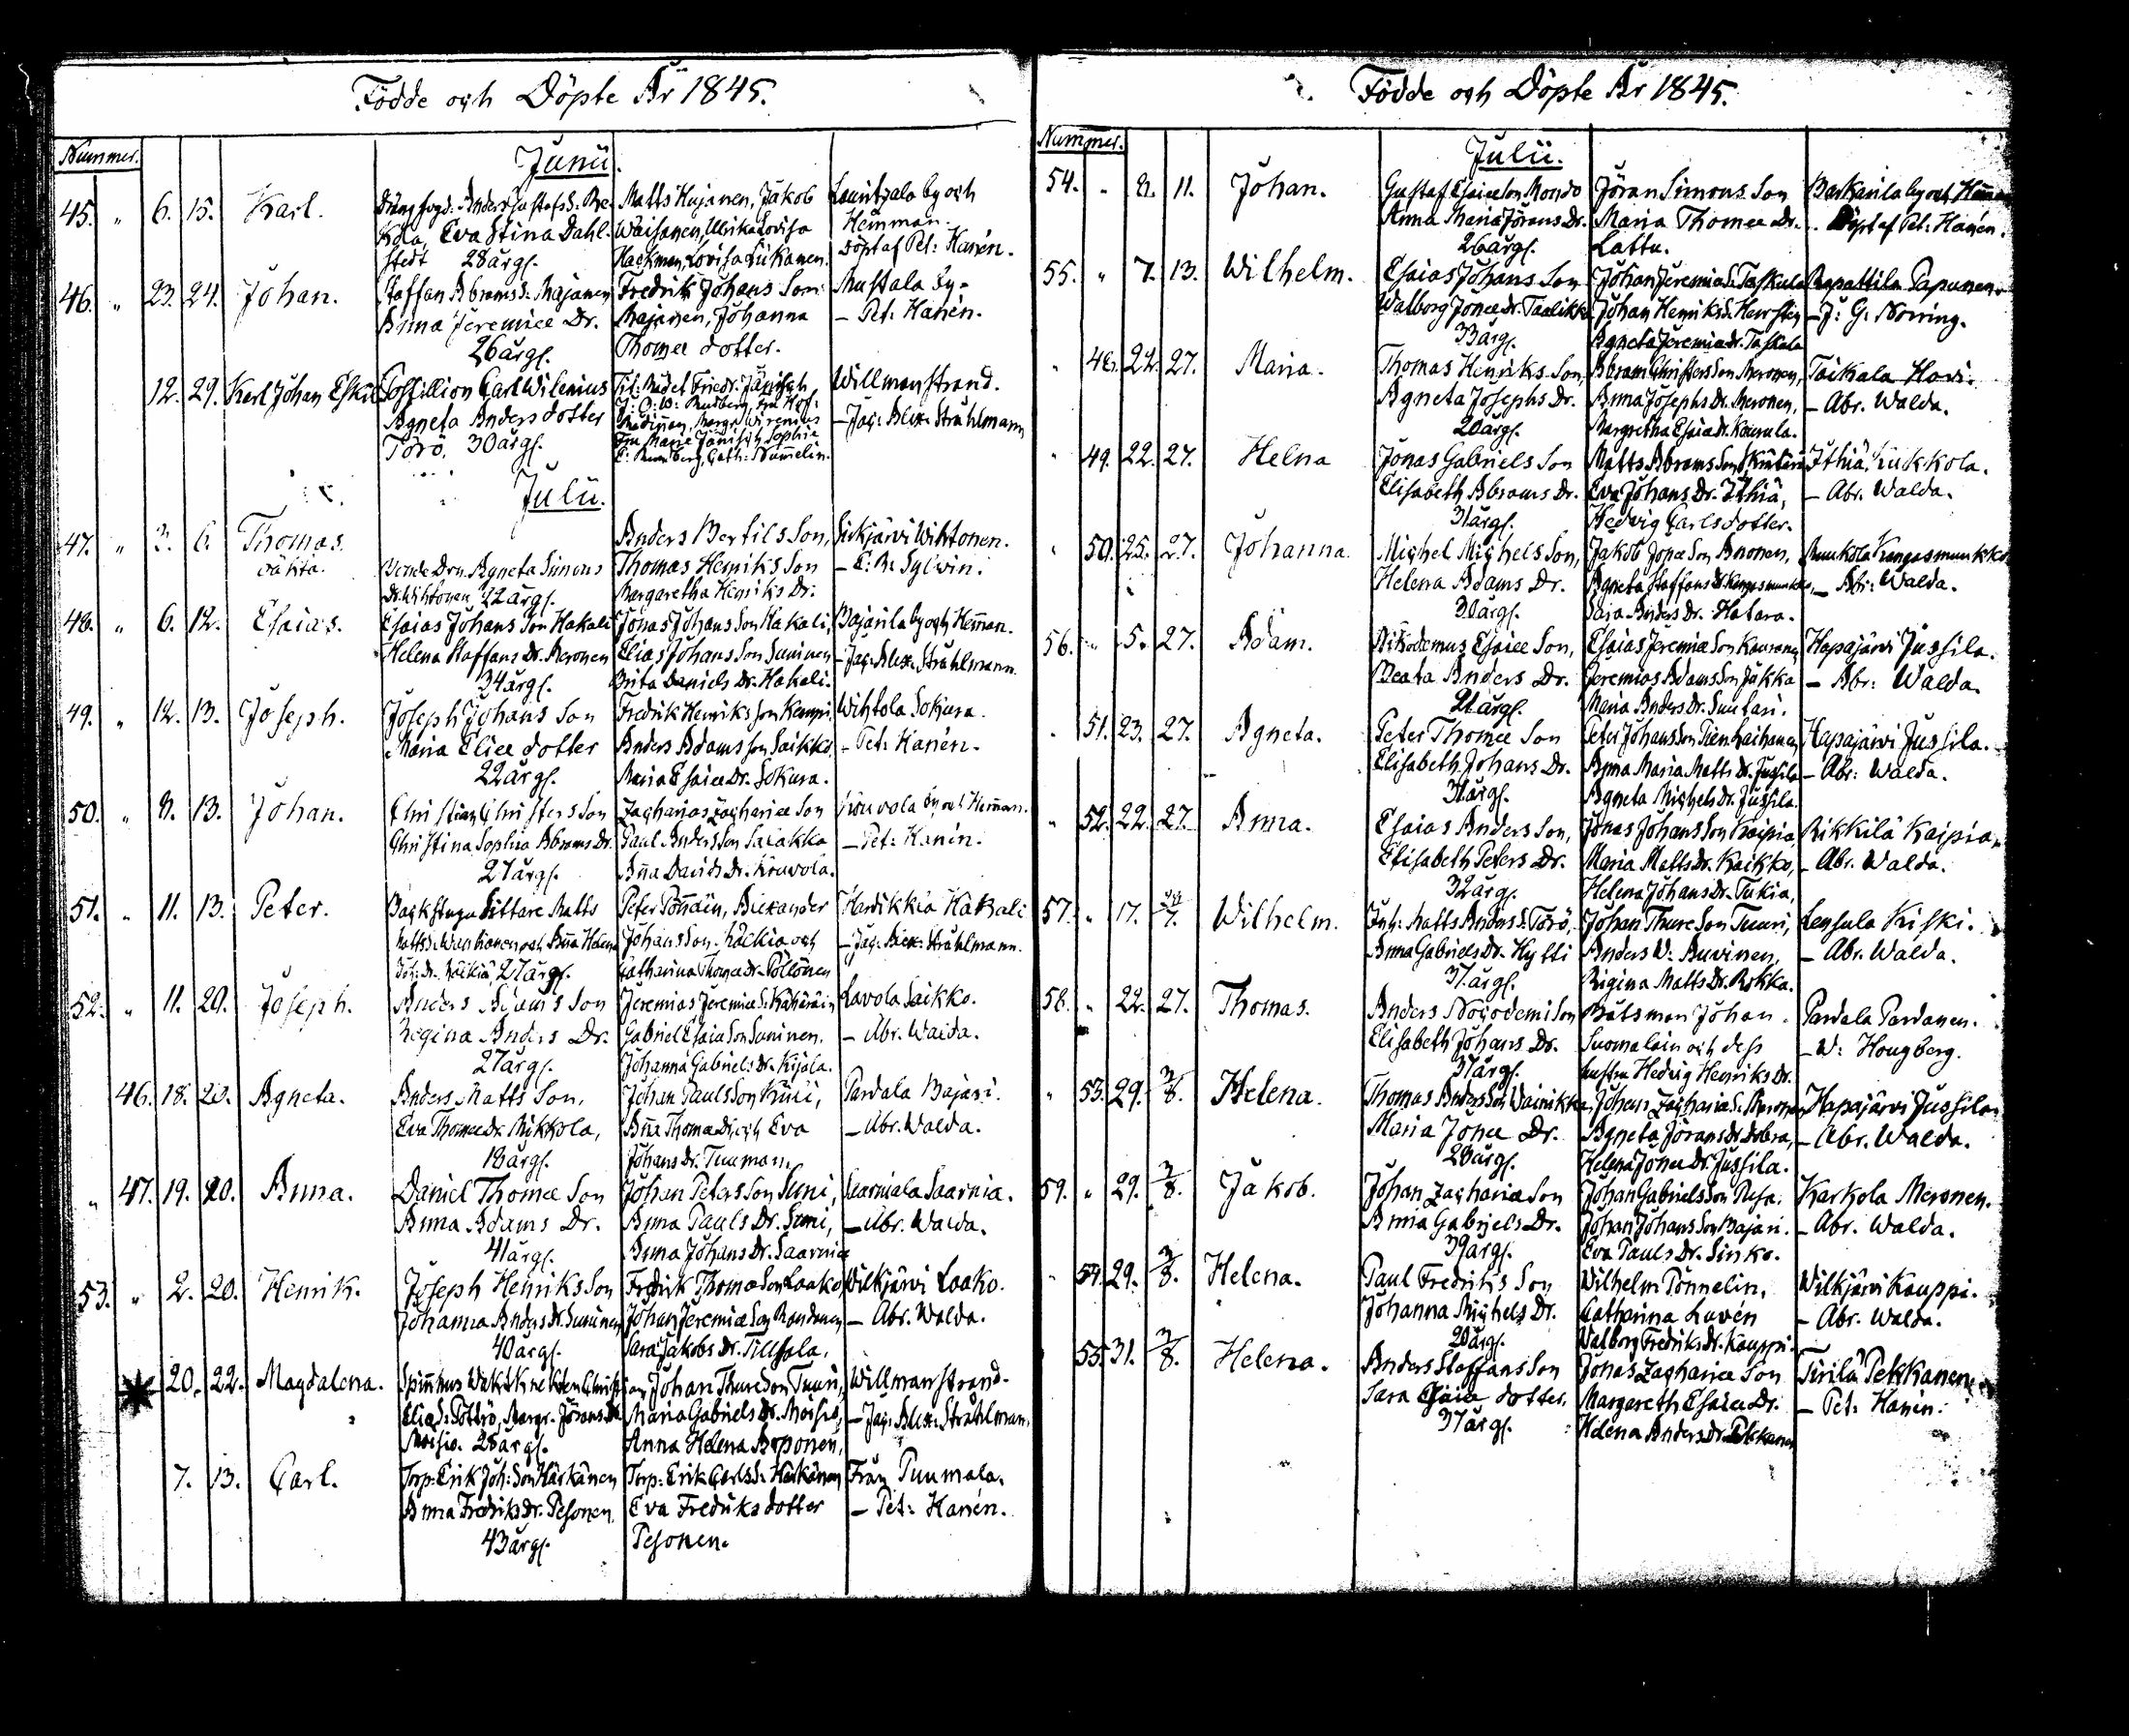 Födde och Döpte År 1845.
Nummer.
Junii.
45. „ 6. 15. Karl. Matts Hujanen, Jakob Lauritsala by och
Kola, Eva Stina Dahl- Wäisänen, Ulrika Lovisa Hemman.
stedt 28 årg. Hackman, Lovisa Liikanen. Döpt af Pet: Hanén.
46. „ 23. 24. Johan. Staffan Abrams S: Majanen Fredrik Johans Son Mustala by-
Anna Jeremiæ Dr. Majanen, Johanna – Pet: Hanén.
26 årg. Thomæ dotter.
12. 29. Karl Johan Eskil Postillion Carl Wilenius Willmanstrand.
Agneta Anders dotter – Jac: Alex: Stråhlmann
Törö, 30 årg. Fru Marie Jänisch, Sophie
Cath: Num̄elin.
Julii.
47. „ 3. 6. Thomas. Anders Bertils Son, Sickjärvi Wihtonen.
oäkta. Agneta Simons Thomas Henriks Son – E: A: Sylwin.
Dr. Wihtonen 22 årg. Margaretha Henriks Dr:
48. „ 6. 12. Esaias. Esaias Johans Son Hakali Jonas Johans Son Hakali, Bajarila by och Hem̄an.
Helena Staffans Dr. Meronen Elias Johans Son Suninen – Jac: Alex: Stråhlmann.
34 årg. Brita Daniels Dr. Hakali.
49. „ 12. 13. Joseph. Joseph Johans Son Fredrik Henriks Son Kemppi, Wihtola Sokura.
Maria Eliæ dotter Anders Adams Son Saikko, – Pet: Hanén.
22 årg. Maria Esaiæ Dr. Sokura.
50. „ 8. 13. Johan. Christian Christers Son Zacharias Zachariæ Son Kouvola by och Hem̄an.
Christina Sophia Abrams Dr. Paul Anders Son Saiakka – Pet: Hanén.
27 årg. An̄a Davids Dr. Kouvola.
51. „ 11. 13. Peter. Backstugu Sittare Matts Peter Pönnäin, Alexander Harvikkia Hakali
Johans Son och – Jac: Alex: Stråhlmann.
27 årg. Catharina Thomæ Dr. Pöllönen
52. „ 11. 20. Joseph. Anders Adams Son Jeremias Jeremiæ S: Kähäräin Lavola Saikko.
Regina Anders Dr. Gabriel Esaiæ Son Suninen. – Abr. Walda.
27 årg. Johanna Gabriels Dr. Kijala.
46. 18. 20. Agneta. Anders Matts Son, Johan Pauls Son Kuni, Pardala Bajari.
Eva Thomæ Dr. Mikkola, An̄a Thomæ Dr och Eva – Abr. Walda.
18 årg. Johans Dr. Tuuman.
„ 47. 19. 20. Anna. Daniel Thomæ Son Johan Peters Son Suni, Saarniala Saarnia.
Anna Adams Dr. Anna Pauls Dr. Suni, – Abr. Walda.
41 årg. Anna Johans Dr. Saarnia
53. „ 2. 20. Henrik. Joseph Henriks Son Fredrik Thomæ Son Laako Wilkjärvi Laako.
Johanna Anders Dr. Suninen Johan Jeremiæ Son Randanen – Abr. Walda.
40 årg. Sara Jakobs Dr. Tillsala.
20. 22. Magdalena. Spinnhus Waktknekten Christian Johan Thure Son Tuuri, Willmanstrand.
Eliæ S: Pöttrö, Margr. Jörans Dr. Maria Gabriels Dr. Moisio, – Jac: Alex: Stråhlman.
Moisio. 28 årg. Anna Helena Arponen,
7. 13. Carl. Torp: Erik Joh: Son Härkänen Torp: Erik Carls S: Härkänen, Från Puumala.
Anna Fredriks Dr. Pesonen Eva Fredriks dotter – Pet: Hanén.
43 årg. Pesonen.
Födde och Döpte År 1845.
Nummer.
Julii.
54. „ 8. 11. Johan. Gustaf Esaiæ Son Monto Jöran Simons Son Karkanila by och Hem̄an
Anna Maria Jörans Dr. Maria Thomæ Dr. Döpt af Pet: Hanén.
26 årg. Lattu.
55. „ 7. 13. Wilhelm. Esaias Johans Son Johan Jeremiæ S: Taskula Rapattila Papunen.
Walborg Jonæ Dr. Taalikka Johan Henriks S. – J: G: Norring.
33 årg. Agneta Jeremiæ Dr. Taskula
„ 48. 22. 27. Maria. Thomas Henriks Son, Abram Christers Son Meronen, Toikala Hovi.
Agneta Josephs Dr. Anna Josephs Dr. Meronen, – Abr. Walda.
20 årg. Margretha Esaiæ Dr. Kausula.
„ 49. 22. 27. Helna Jonas Gabriels Son Matts Abrams Son Ithiä Kukkola.
Elisabeth Abrams Dr. Eva Johans Dr. Ithiä, – Abr. Walda.
31 årg. Hedvig Carls dotter.
„ 50. 25. 27. Johanna. Michel Michels Son, Jakob Jonæ Son Anonen, Muukola Kangasmuukko
Helena Adams Dr. Agneta Staffans Dr Kangasmuukko, – Abr: Walda.
30 årg. Saia Anders Dr. Hatara.
56. „ 5. 27. Adam. Nikodemus Esaiæ Son, Esaias Jeremiæ Son Kauranen Hapajärvi Jussila.
Beata Anders Dr. Jeremias Adams Son Jukka – Abr: Walda.
21 årg. Maria Anders Dr. Suutari.
„ 51. 23. 27. Agneta. Peter Thomæ Son Peter Johans Son Tienhaihanen Hapajärvi Jussila.
Elisabeth Johans Dr. Anna Maria Matts Dr. Jussila – Abr: Walda.
31 årg. Agneta Michels Dr. Jussila.
„ 52. 22. 27. Anna. Esaias Anders Son, Jonas Johans Son Kaipia, Rikkilä Kaipia.
Elisabeth Peters Dr. Maria Matts Dr. Kaikko, – Abr. Walda.
32 årg. Helena Johans Dr. Tukia,
57. „ 17. Wilhelm. Inh: Matts Anders S: Törö, Johan Thure Son Tuuri, Lensula Kiski.
Anna Gabriels Dr. Hytti Anders W: Auvinen, – Abr. Walda.
37 årg. Rigina Matts Dr. Rokka.
58. „ 22. 27. Thomas. Anders Nicodemi Son Båtsman Johan Pardala Pardanen.
Elisabeth Johans Dr. Suomalain och dess – W: Hougberg.
37 årg. hustru Hedvig Henriks Dr.
„ 53. 29. 3/8. Helena. Thomas Anders Son Wainikka, Johan Zachariæ S: Meronen Hapajärvi Jussila.
Maria Jonæ Dr. Agneta Jörans Dr – Abr. Walda.
28 årg. Helena Jonæ Dr. Jussila.
59. „ 29. 3/8. Jakob. Johan Zachariæ Son Johan Gabriels Son Pesa. Karkola Meronen.
Anna Gabriels Dr. Johan Johans Son Bajari. – Abr. Walda.
39 årg. Eva Pauls Dr. Sinko.
„ 54. 29. 3/8. Helena. Paul Fredriks Son Wilhelm Pönnelin, Wilkjärvi Kauppi.
Johanna Michels Dr. Catharina Lavén – Abr. Walda.
20 årg. Walborg Fredriks Dr. Kauppi.
55. 31. 3/8. Helena. Anders Staffans Son Jonas Zachariæ Son Tirilä Pekkanen.
Sara Esaiæ dotter. Margareth Esaiæ Dr. – Pet: Hanén.
37 årg. Helena Anders Dr Pekkanen